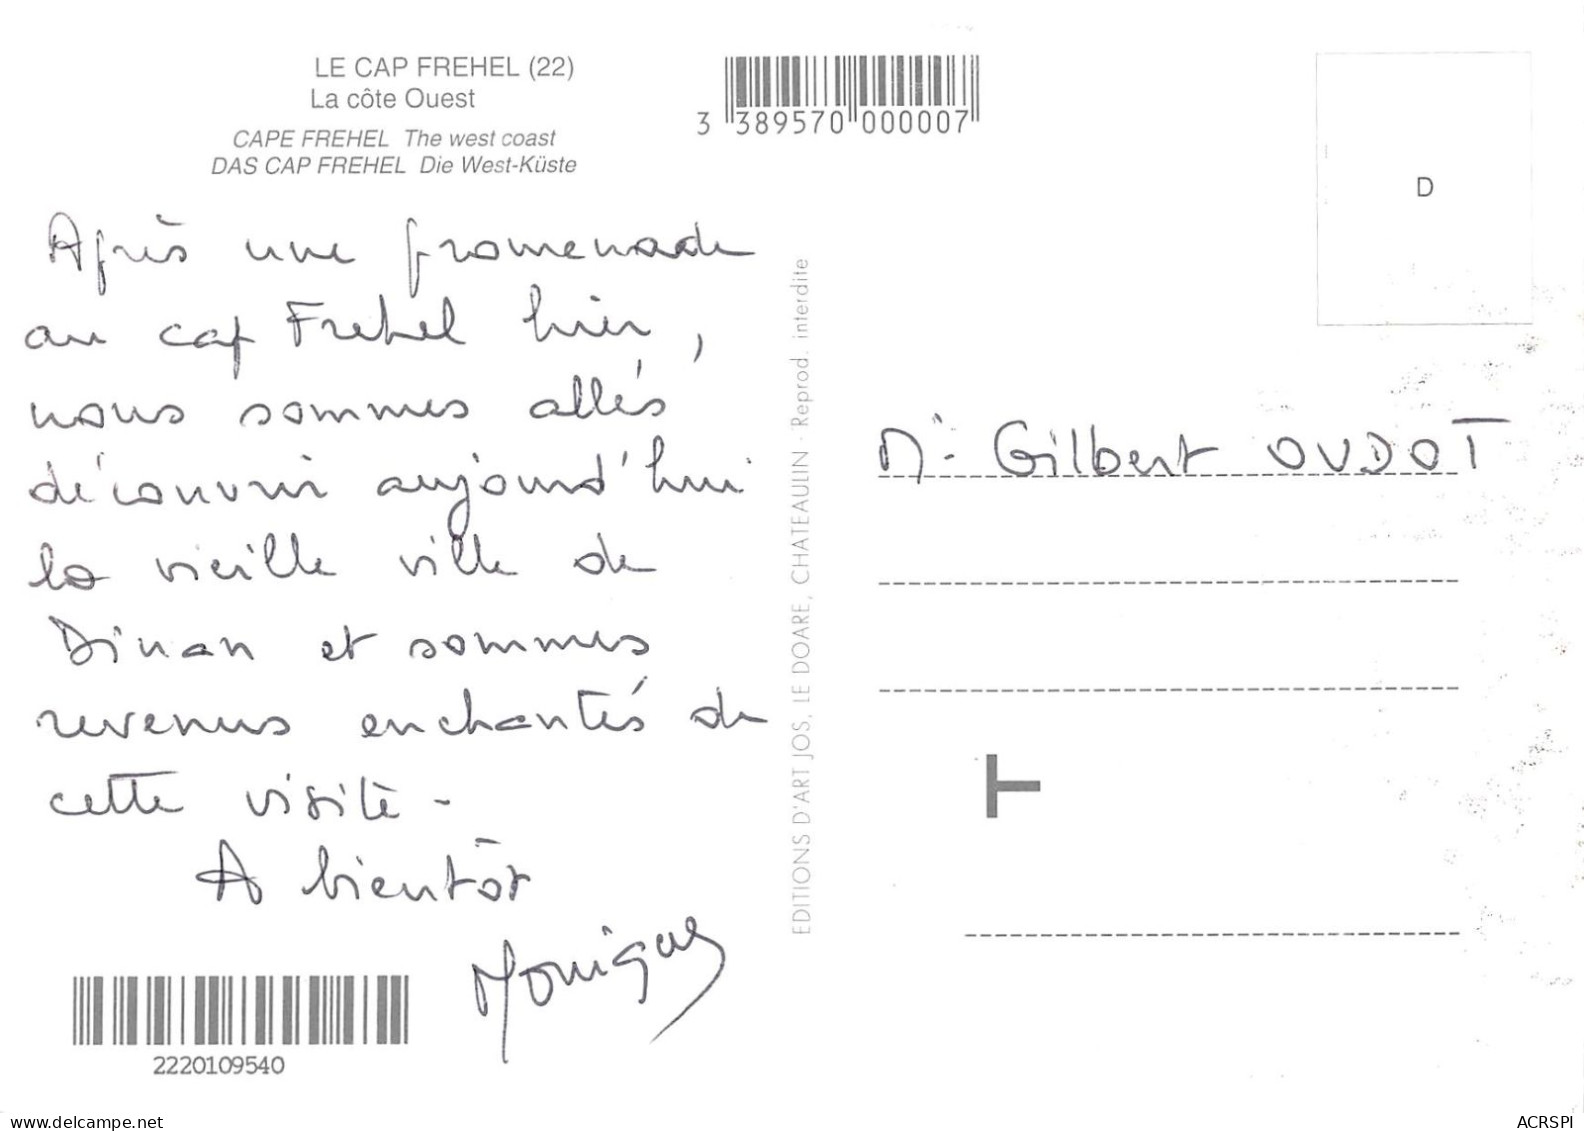 LE CAP FREHEL (22)
La côte Ouest
CAPE FREHEL The west coast
DAS CAP FREHEL Die West-Küste
3 389570 000007
D
Après une promenade
au cap Frehel hier,
nous sommes allés
découvrir aujourd'hui
la vieille ville de
Dinan et sommes
revenus enchantés de
cette visite -
A bientôt
Monique
2220109540
EDITIONS D'ART JOS, LE DOARE, CHATEAULIN - Reprod. interdite
Mr Gilbert OUDOT
T
delcampe.net
ACRSPI